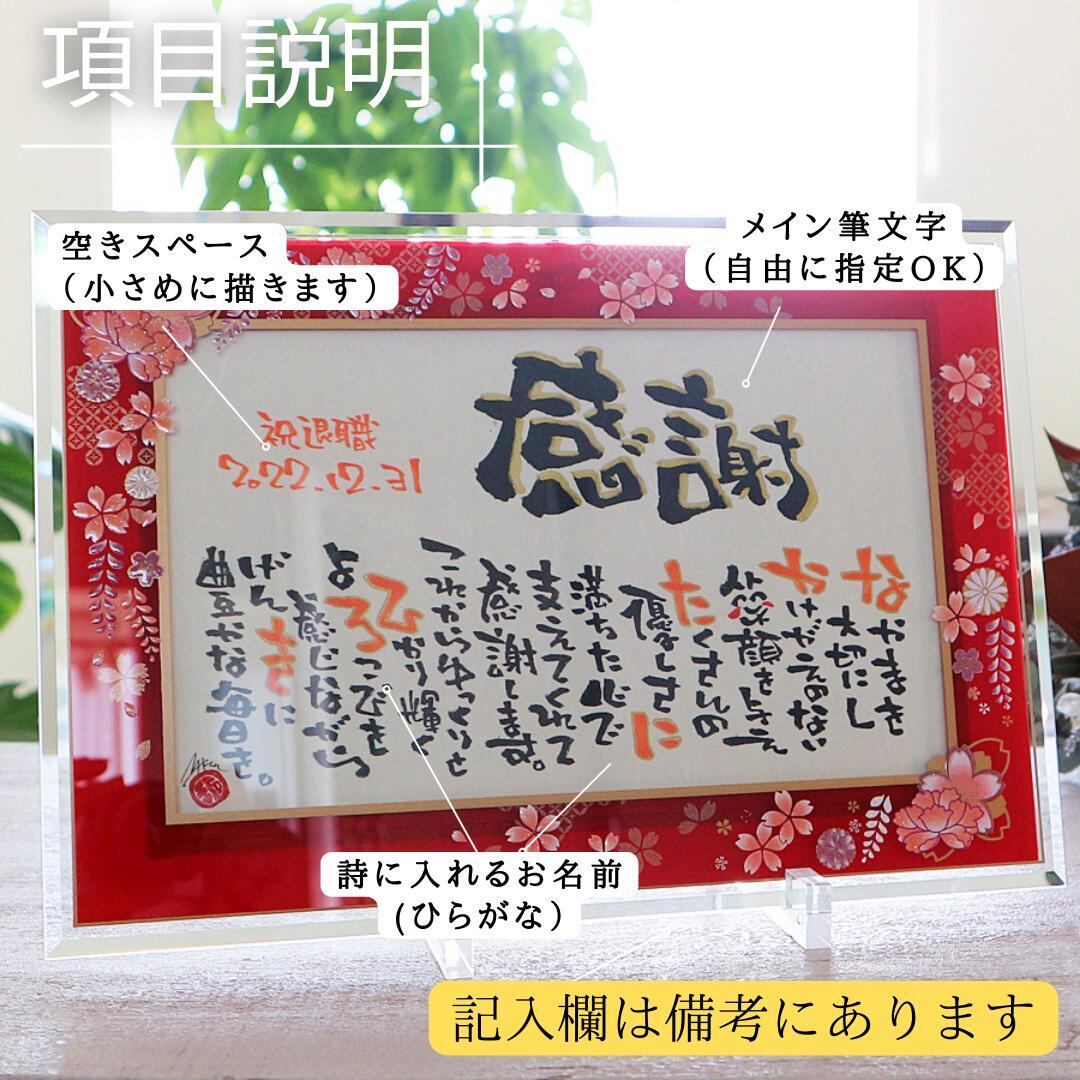 項目説明
空きスペース
（小さめに描きます）
メイン筆文字
（自由に指定OK）
感謝
祝退職
2022.12.31
なかまを
大切にし
かけがえのない
笑顔をささえ
たくさんの
優しさに
満ちた心で
支えてくれて
感謝します。
これからゆっくりと
ひかり輝く
よろこびを
感じながら
げんきに
豊かな毎日を。
詩に入れるお名前
(ひらがな）
記入欄は備考にあります